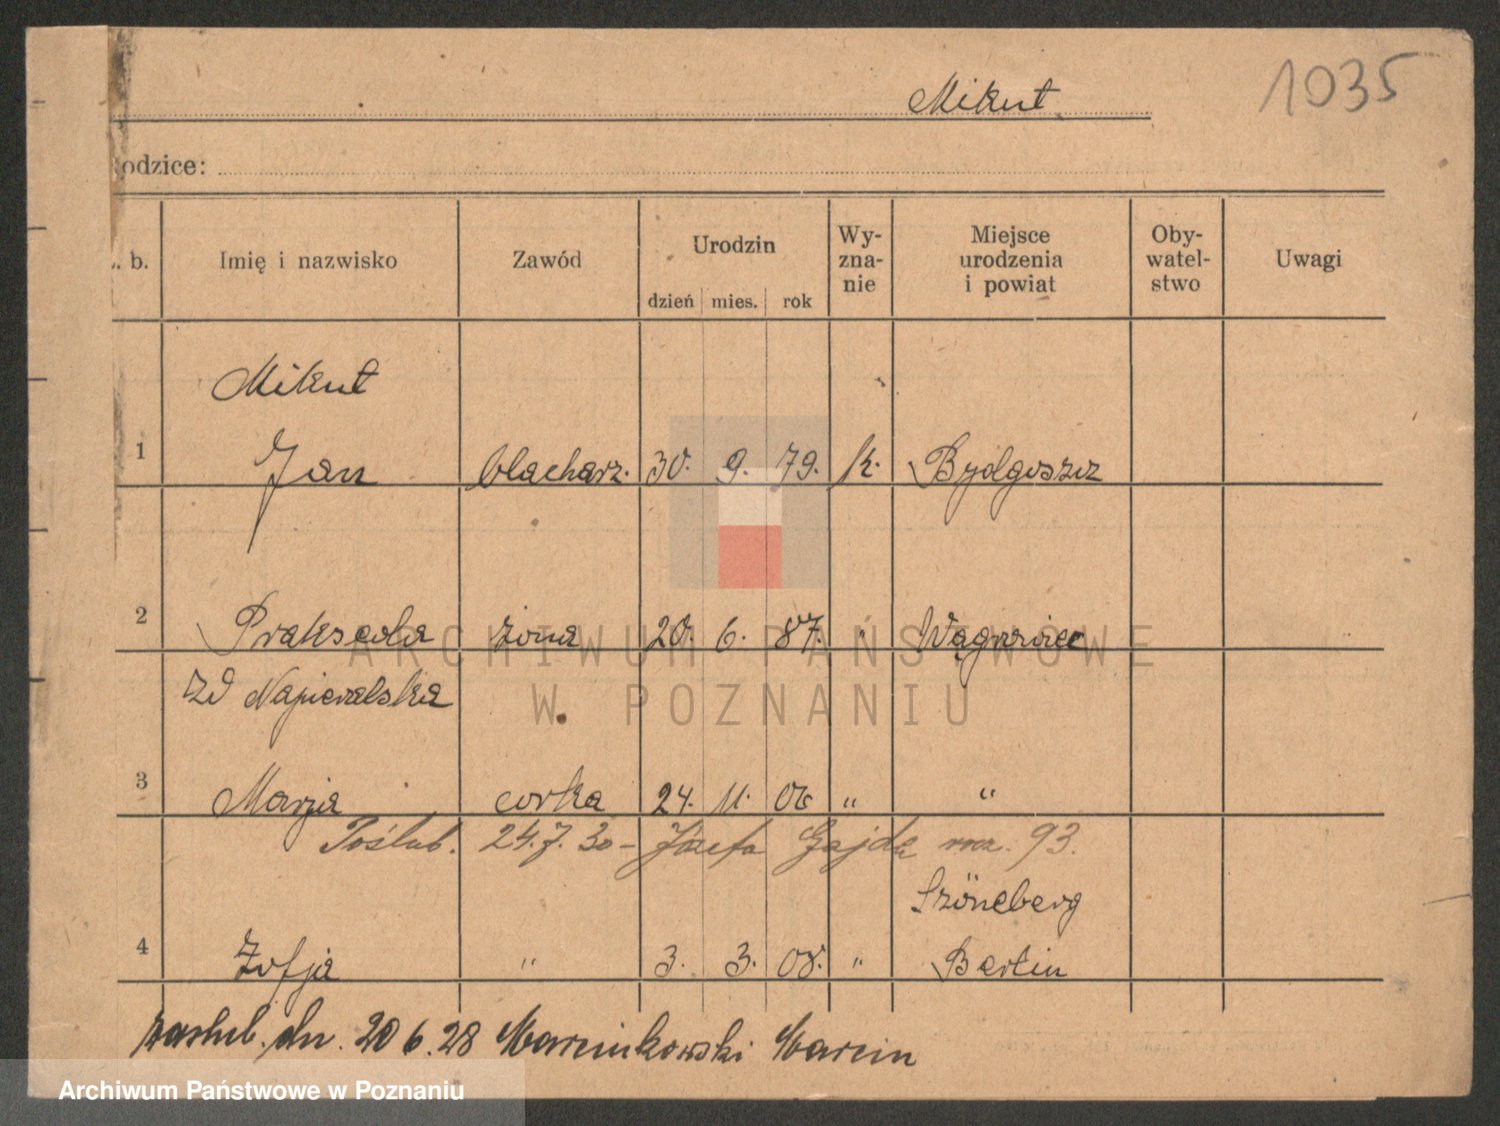 Mikut
1035
odzice:
. b.
Imię i nazwisko
Zawód
Urodzin
dzień mies. rok
Wy-
zna-
nie
Miejsce
urodzenia
i powiat
Oby-
watel-
stwo
Uwagi
Mikut
1 Jan blacharz. 30. 9. 79. k. Bydgoszcz
2 Prakseda żona 20. 6. 87. " Wągrowiec
zd Napieralska
3 Marja corka 24. 11. 06 " "
Poślub. 24.7.30 – Józefa Gajda 93.
Szöneberg
4 Zofja " 3. 3. 08. " Berlin
zaslub. dn. 20 6. 28 Marcinkowski Marcin
ARCHIWUM PAŃSTWOWE
W POZNANIU
Archiwum Państwowe w Poznaniu